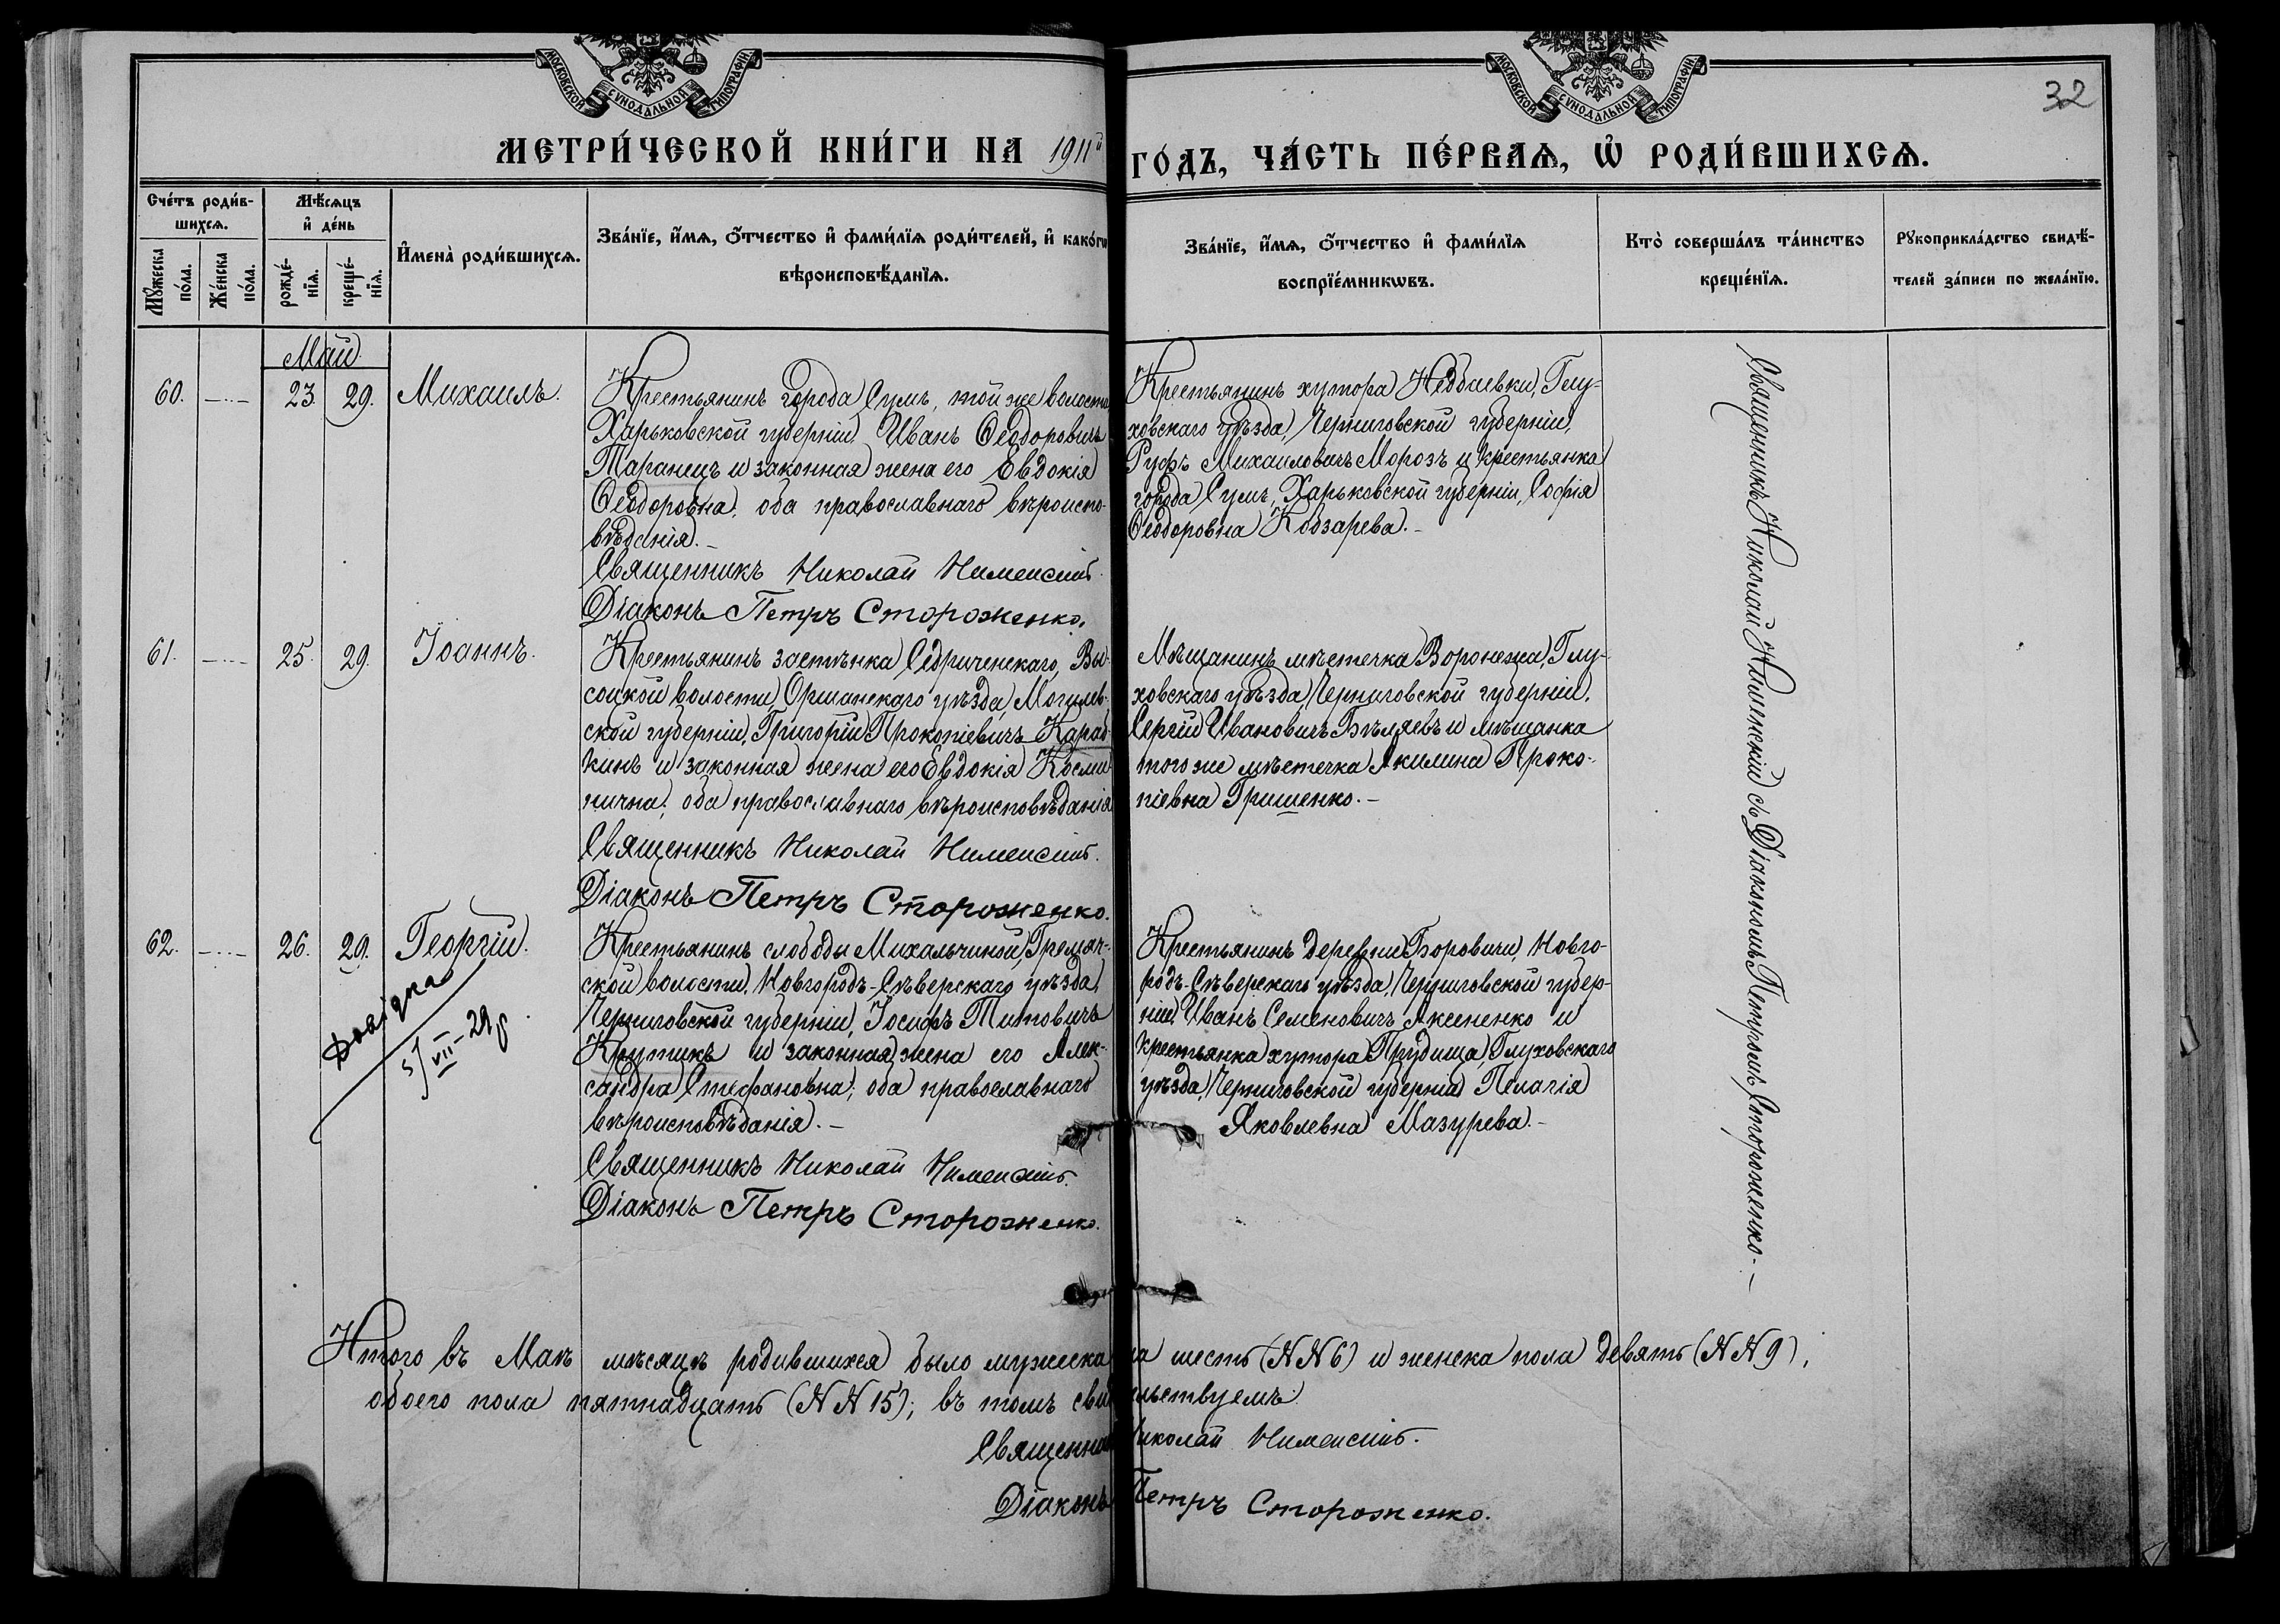 МОСКОВСКОЙ СѴНОДАЛЬНОЙ ТИПОГРАФІИ
МОСКОВСКОЙ СѴНОДАЛЬНОЙ ТИПОГРАФІИ
32
МЕТРИ́ЧЕСКОЙ КНИ́ГИ НА 1911й ГО́ДЪ, ЧА́СТЬ ПЕ́РВАѦ, Ѡ҆ РОДИ́ВШИХСѦ.
Сче́тъ роди́в-
шихсѧ.
Мꙋ́жеска
по́ла.
Же́нска
по́ла.
Мѣ́сѧцъ
и҆ де́нь
рожде́-
нїѧ.
креще́-
нїѧ.
И҆мена̀ роди́вшихсѧ.
Зва́нїе, и҆́мѧ, ѻ҆́тчество и҆ фами́лїѧ роди́телей, и҆ како́гѡ
вѣроисповѣ́данїѧ.
Зва́нїе, и҆́мѧ, ѻ҆́тчество и҆ фами́лїѧ
воспрїе́мникѡвъ.
Кто̀ соверша́лъ та́инство
креще́нїѧ.
Рꙋкоприкла́дство свидѣ́-
телей за́писи по жела́нїю.
Май
60. 23. 29. Михаилъ.
Крестьянинъ города Сумъ, той же волости
Харьковской губерніи, Иванъ Ѳеодоровичъ
Таранецъ и законная жена его Евдокія
Ѳеодоровна, оба православнаго вѣроиспо-
вѣданія.-
Священникъ Николай
Діаконъ Петръ Стороженко.
Крестьянинъ хутора Неддаевки, Глу-
ховскаго уѣзда, Черниговской губерніи,
Руфъ Михаиловичъ Морозъ и крестьянка
города Сумъ, Харьковской губерніи, Софія
Ѳеодоровна Кобзарева.-
61. 25. 29. Іоаннъ.
Крестьянинъ застѣнка Седриченскаго, Вы-
соцкой волости, Оршанскаго уѣзда, Могилев-
ской губерніи, Григорій Прокопіевичъ Караб-
кинъ и законная жена его Евдокія Косми-
нична, оба православнаго вѣроисповѣданія
Священникъ Николай
Діаконъ Петръ Стороженко.
Мѣщанинъ мѣстечка Воронежа, Глу-
ховскаго уѣзда, Черниговской губерніи,
Сергій Ивановичъ Бѣляевъ и мѣщанка
того же мѣстечка Акилина Проко-
піевна Гришенко.-
62. 26. 29. Георгій.
Довідка
5/VII-29р.
Крестьянинъ слободы Михальчиной, Гремяч-
ской волости, Новгородъ-Сѣверскаго уѣзда,
Черниговской губерніи, Іосифъ Титовичъ
Крутикъ и законная жена его Алек-
сандра Стефановна; оба православнаго
вѣроисповѣданія.-
Священникъ Николай
Діаконъ Петръ Стороженко.
Крестьянинъ деревни Боровичи, Новго-
родъ-Сѣверскаго уѣзда, Черниговской губер-
ніи, Иванъ Семеновичъ Аксененко и
крестьянка хутора Прудища, Глуховскаго
уѣзда, Черниговской губерніи Пелагія
Яковлевна Мазурева.-
Священникъ Николай съ Діакономъ Петромъ Стороженко.-
Итого въ Маѣ мѣсяцѣ родившихся было мужеска на шесть (№№6) и женска пола девять (№№9),
обоего пола пятнадцать (№№15); въ томъ сви ельствуемъ:
Священни Николай
Діаконъ Петръ Стороженко.